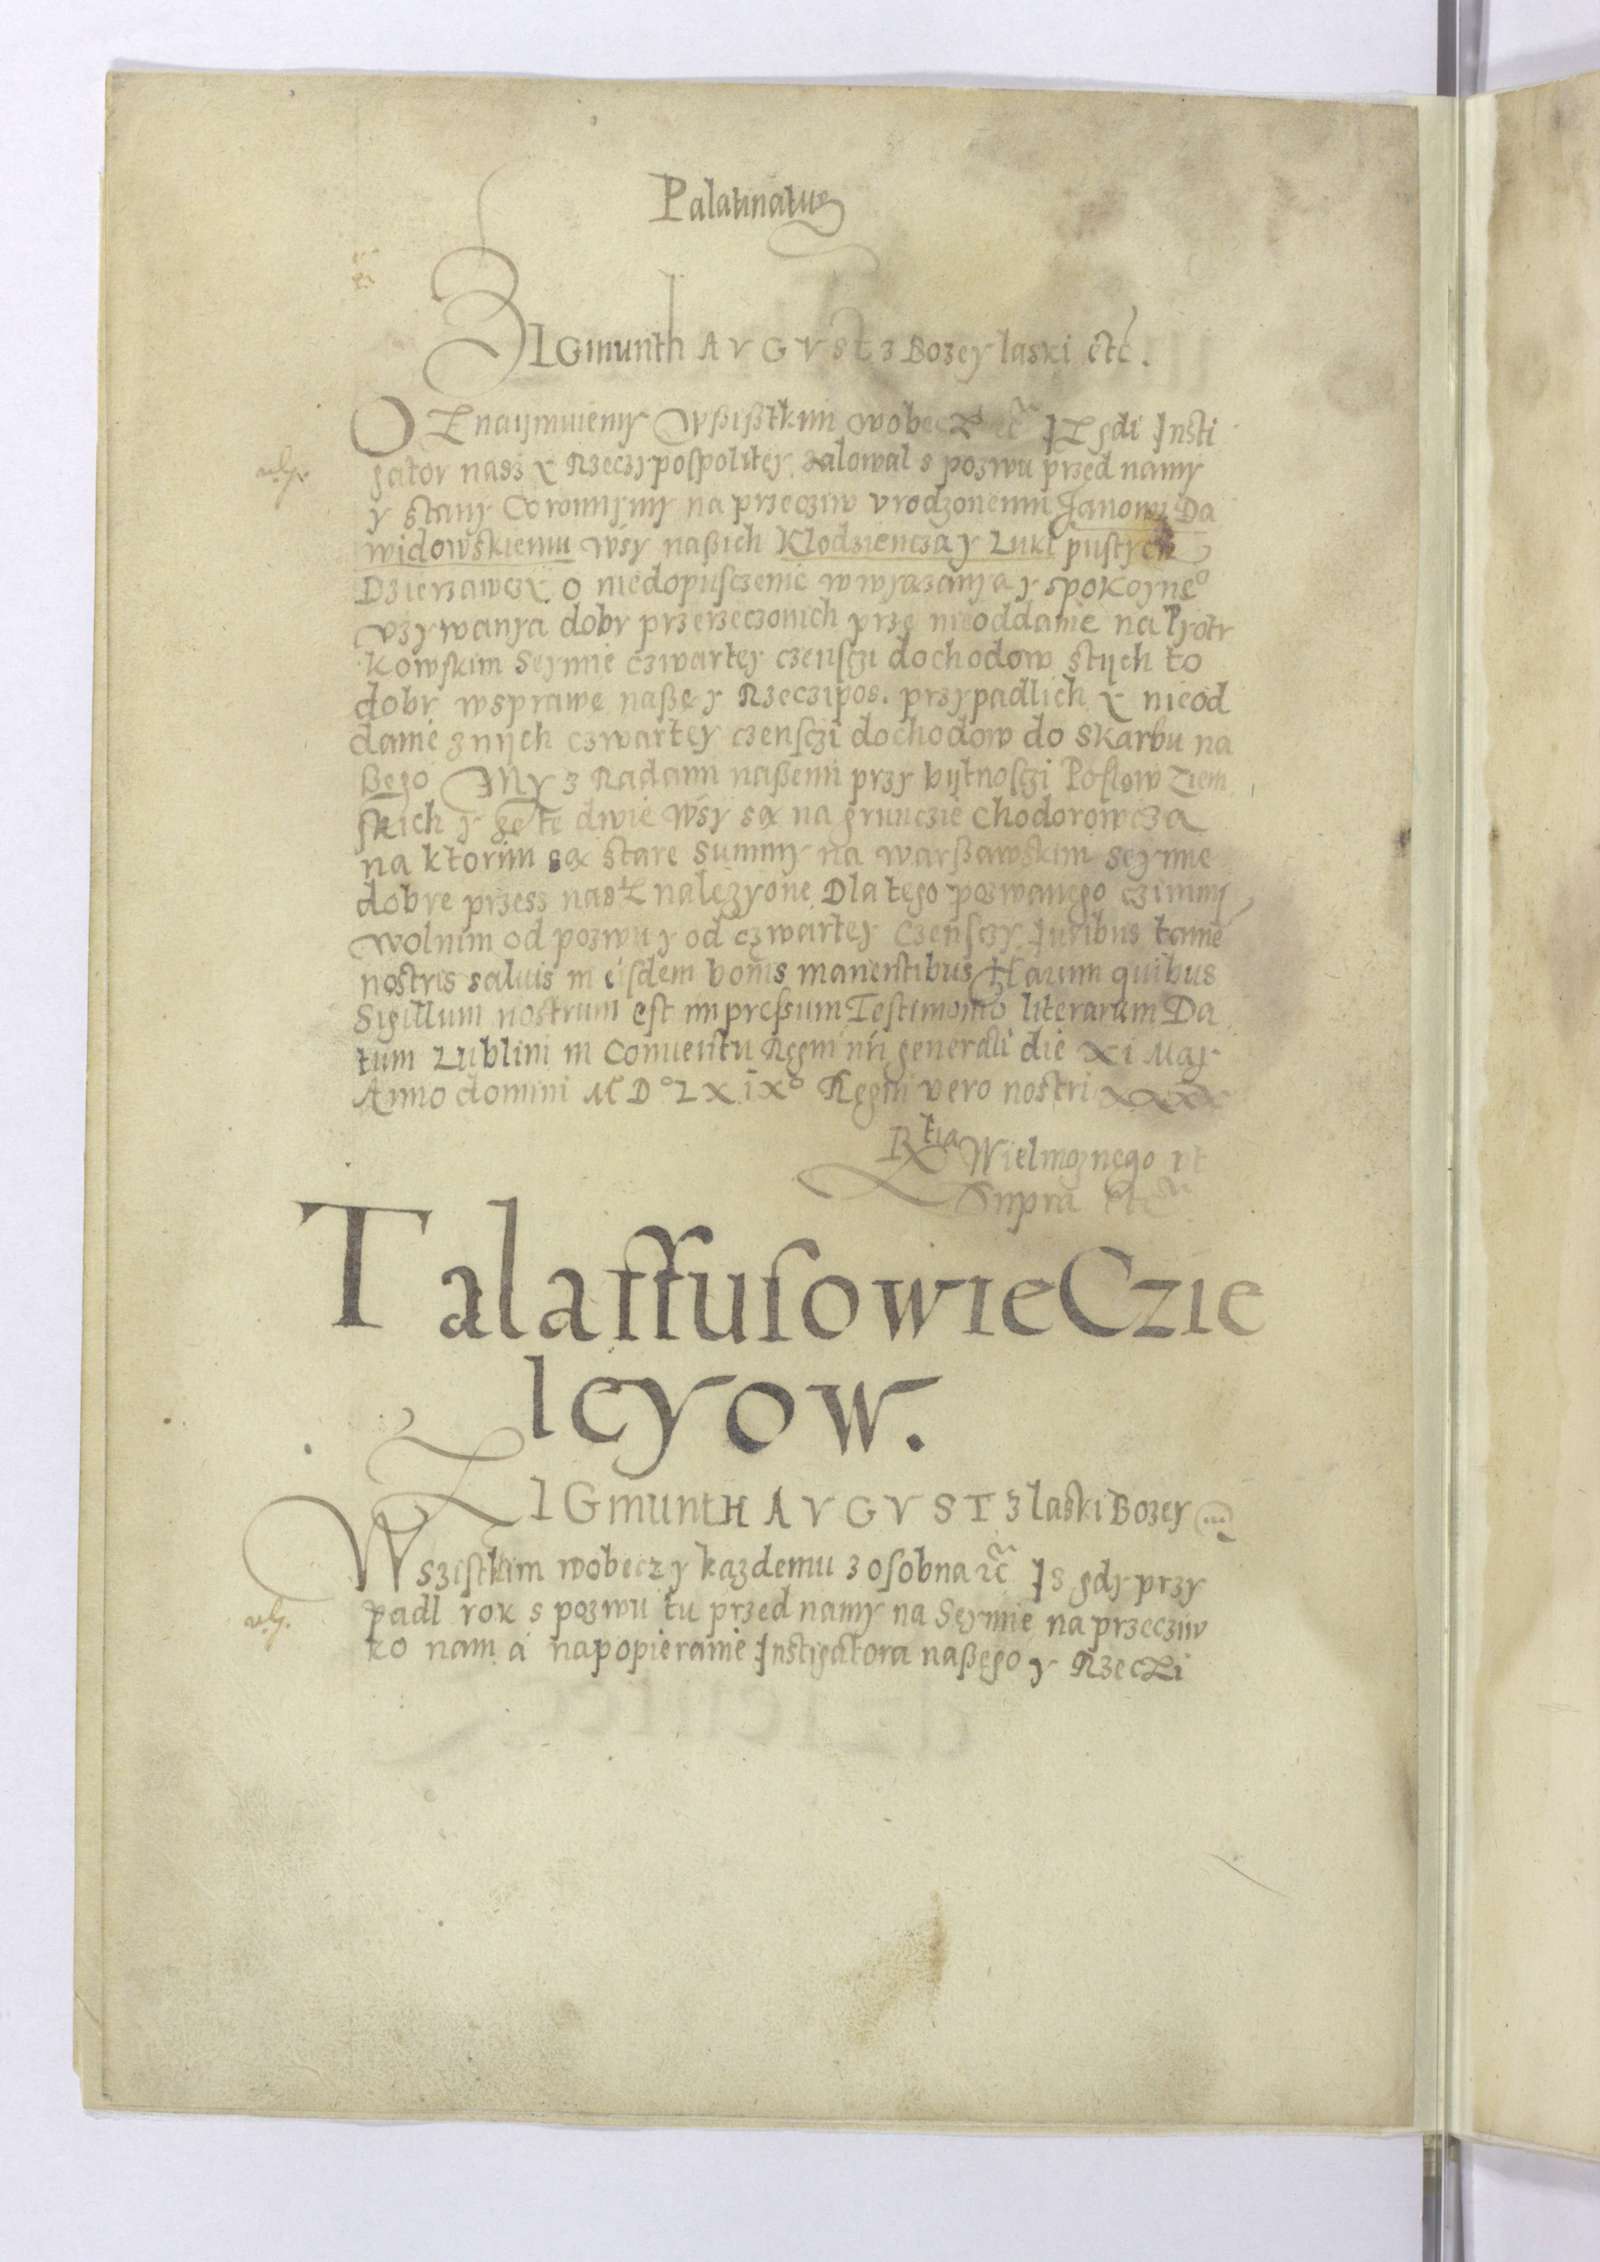 Palatinatus
ZIGmunth AVGVST z Bozey laski etc.
OZnaijmuiemy Wßißtkim wobecz etc IZ gdi Insti
gator nasz y Rzeczypospolitey zalowal s pozwu przed namy
y stany Coronnymy na przecziw vrodzonemu Janowi Da
widowskiemu wsy naßich Klodziencza y Luki pustych
Dzierzawczy o niedopusczenie w wiązanya y spokoyneo
vzywanya dobr przerzeczonich prze nieoddanie na Pyotr
kowskim Seymie czwartey czensczi dochodow s tijch to
dobr w sprawę naßę y Rzeczipos. przypadlich y nieod
danie z nijch czwartey czensczi dochodow do skarbu na
ßego My z Radami naßemi przy bijtnosczi Poslow Ziem
skich y ze te dwie wsy są na grunczie Chodorowcza
na ktorim są stare summy na warßawskim seymie
dobre przess nas znalezyone Dla tego pozwanego czinimy
wolnim od pozwu y od czwartey Czensczy Iuribus tamen
nostris saluis in eisdem bonis manentibus Harum quibus
Sigillum nostrum est impressum Testimonio literarum Da
tum Lublini in Conuentu Regni nri generali die xi Maij
Anno domini M Do L X i Xo Regni vero nostri xxxx
Rtia Wielmoznego vt
Supra etc
TalaffusowieCzie
leyow.
ZIGmuntH AVGVST z laski Bozey
Wszistkim wobecz y kazdemu z osobna etc Is gdy przy
padl rok s pozwu tu przed namy na Seymie na przecziw
ko nam a na popieranie Instigatora naßego y Rzeczi